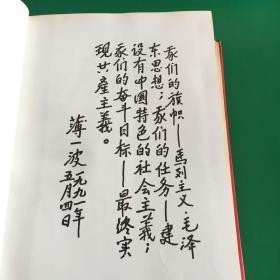 我们的旗帜——马列主义、毛泽
东思想；我们的任务——建
设有中国特色的社会主义；
我们的奋斗目标——最终实
现共产主义。
薄一波 一九九一年
五月四日